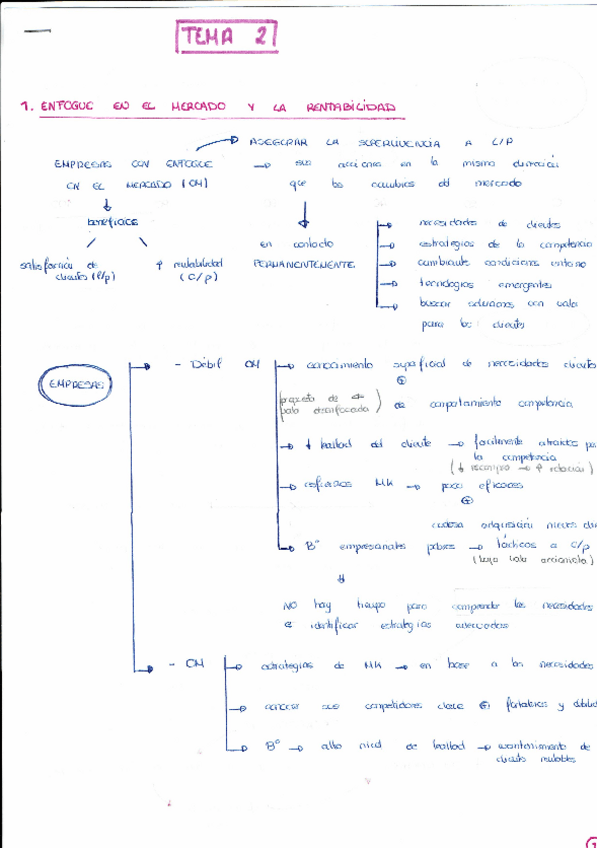 TEMA 2
1. ENFOQUE EN EL MERCADO Y LA RENTABILIDAD
ASEGURAR LA SUPERVIVENCIA A L/P
EMPRESAS CON ENFOQUE → sus acciones en la misma dirección
EN EL MERCADO (OM) que los cambios del mercado
beneficios
satisfacción de clientes (l/p)
↑ rentabilidad (c/p)
en contacto
PERMANENTEMENTE
→ necesidades de clientes
→ estrategias de la competencia
→ cambiante condiciones entorno
→ tecnologías emergentes
→ buscar soluciones con valor
para los clientes
EMPRESAS
- Débil OM → conocimiento superficial de necesidades clientes
+
(propuesta de valor desenfocada) de comportamiento competencia
→ ↓ lealtad del cliente → fácilmente atraídos
la competencia
→ esfuerzos MK → poco eficaces
+
costosa adquisición nuevos
→ Bº empresariales pobres → tácticos a C/p
(bajo valor accionista)
NO hay tiempo para comprender las necesidades
e identificar estrategias adecuadas
- OM → estrategias de MK → en base a las necesidades
→ conocer sus competidores clave + fortalezas y
→ Bº → alto nivel de lealtad → mantenimiento de
clientes rentables